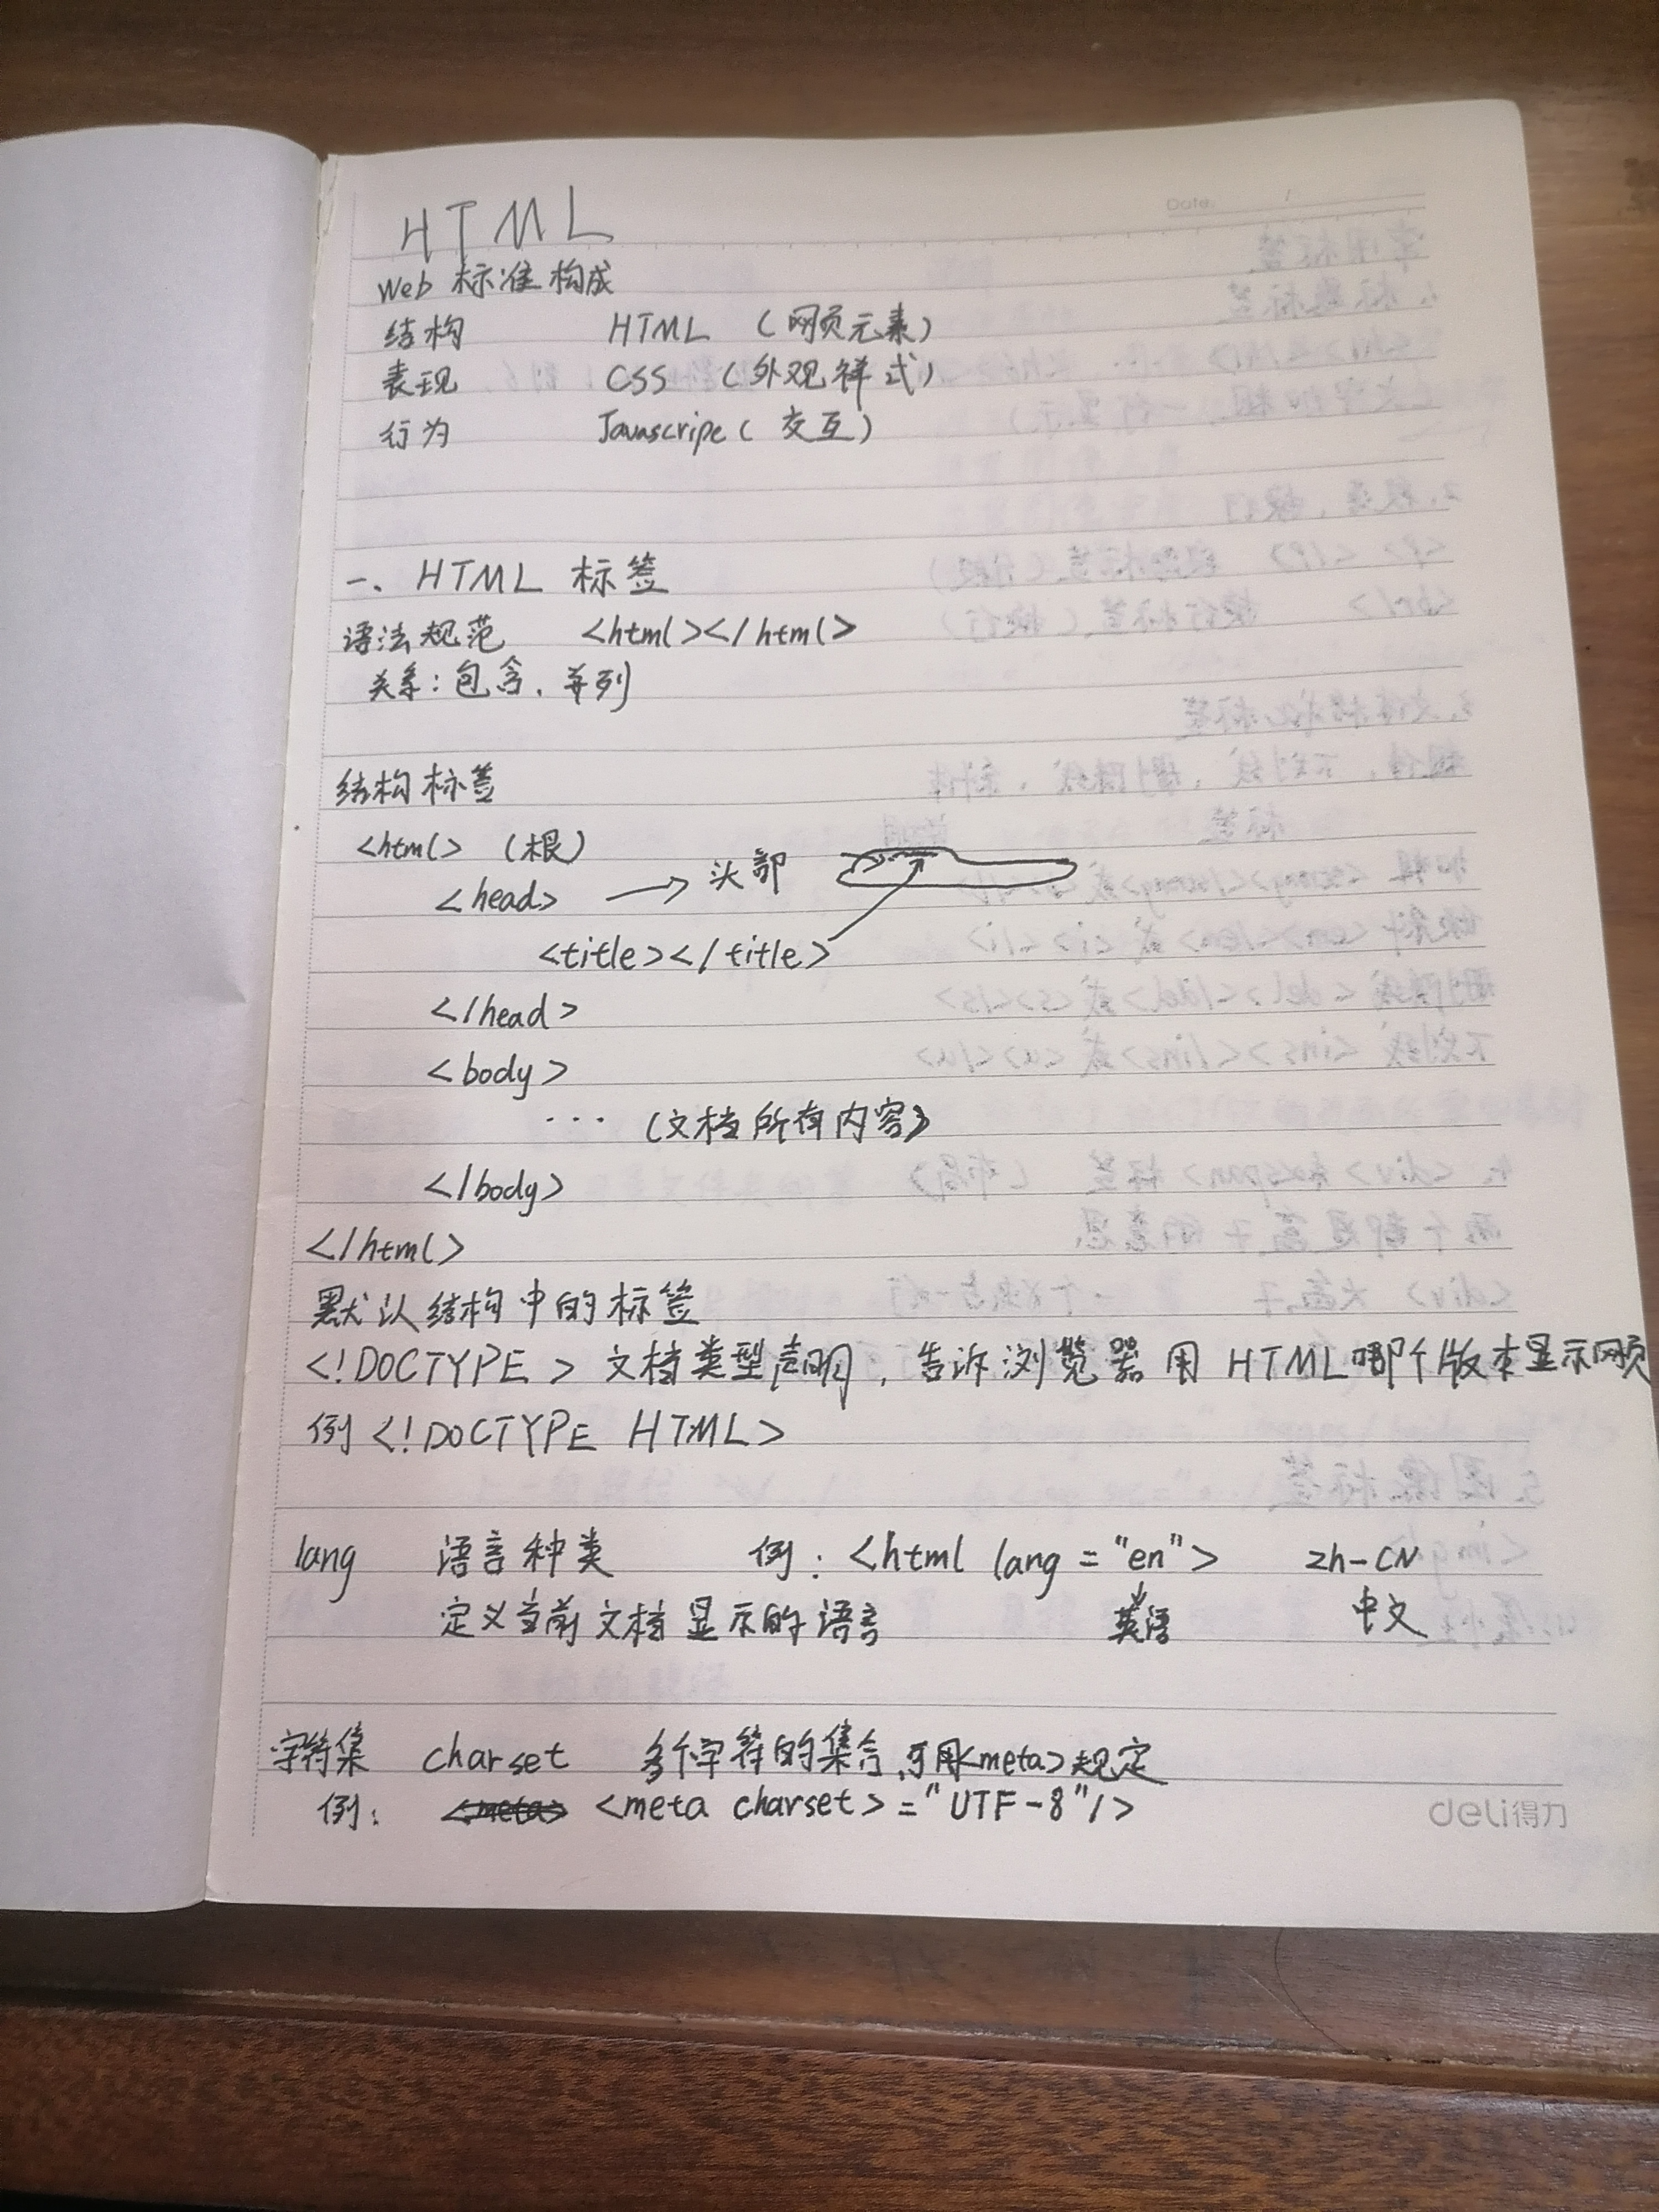 Date: /
HTML
Web 标准构成
结构 HTML （网页元素）
表现 CSS （外观样式）
行为 Javascripe（交互）
一、HTML 标签
语法规范 <html></html>
关系：包含、并列
结构标签
<html> （根）
<head> → 头部
<title></title>
</head>
<body>
··· （文档所有内容）
</body>
</html>
默认结构中的标签
<!DOCTYPE> 文档类型声明，告诉浏览器用 HTML 哪个版本显示网页
例 <!DOCTYPE HTML>
lang 语言种类 例：<html lang = "en"> zh-CN
定义当前文档显示的语言 英语 中文
字符集 charset 多个字符的集合，可用<meta>规定
例： <meta> <meta charset>="UTF-8"/>
deli得力